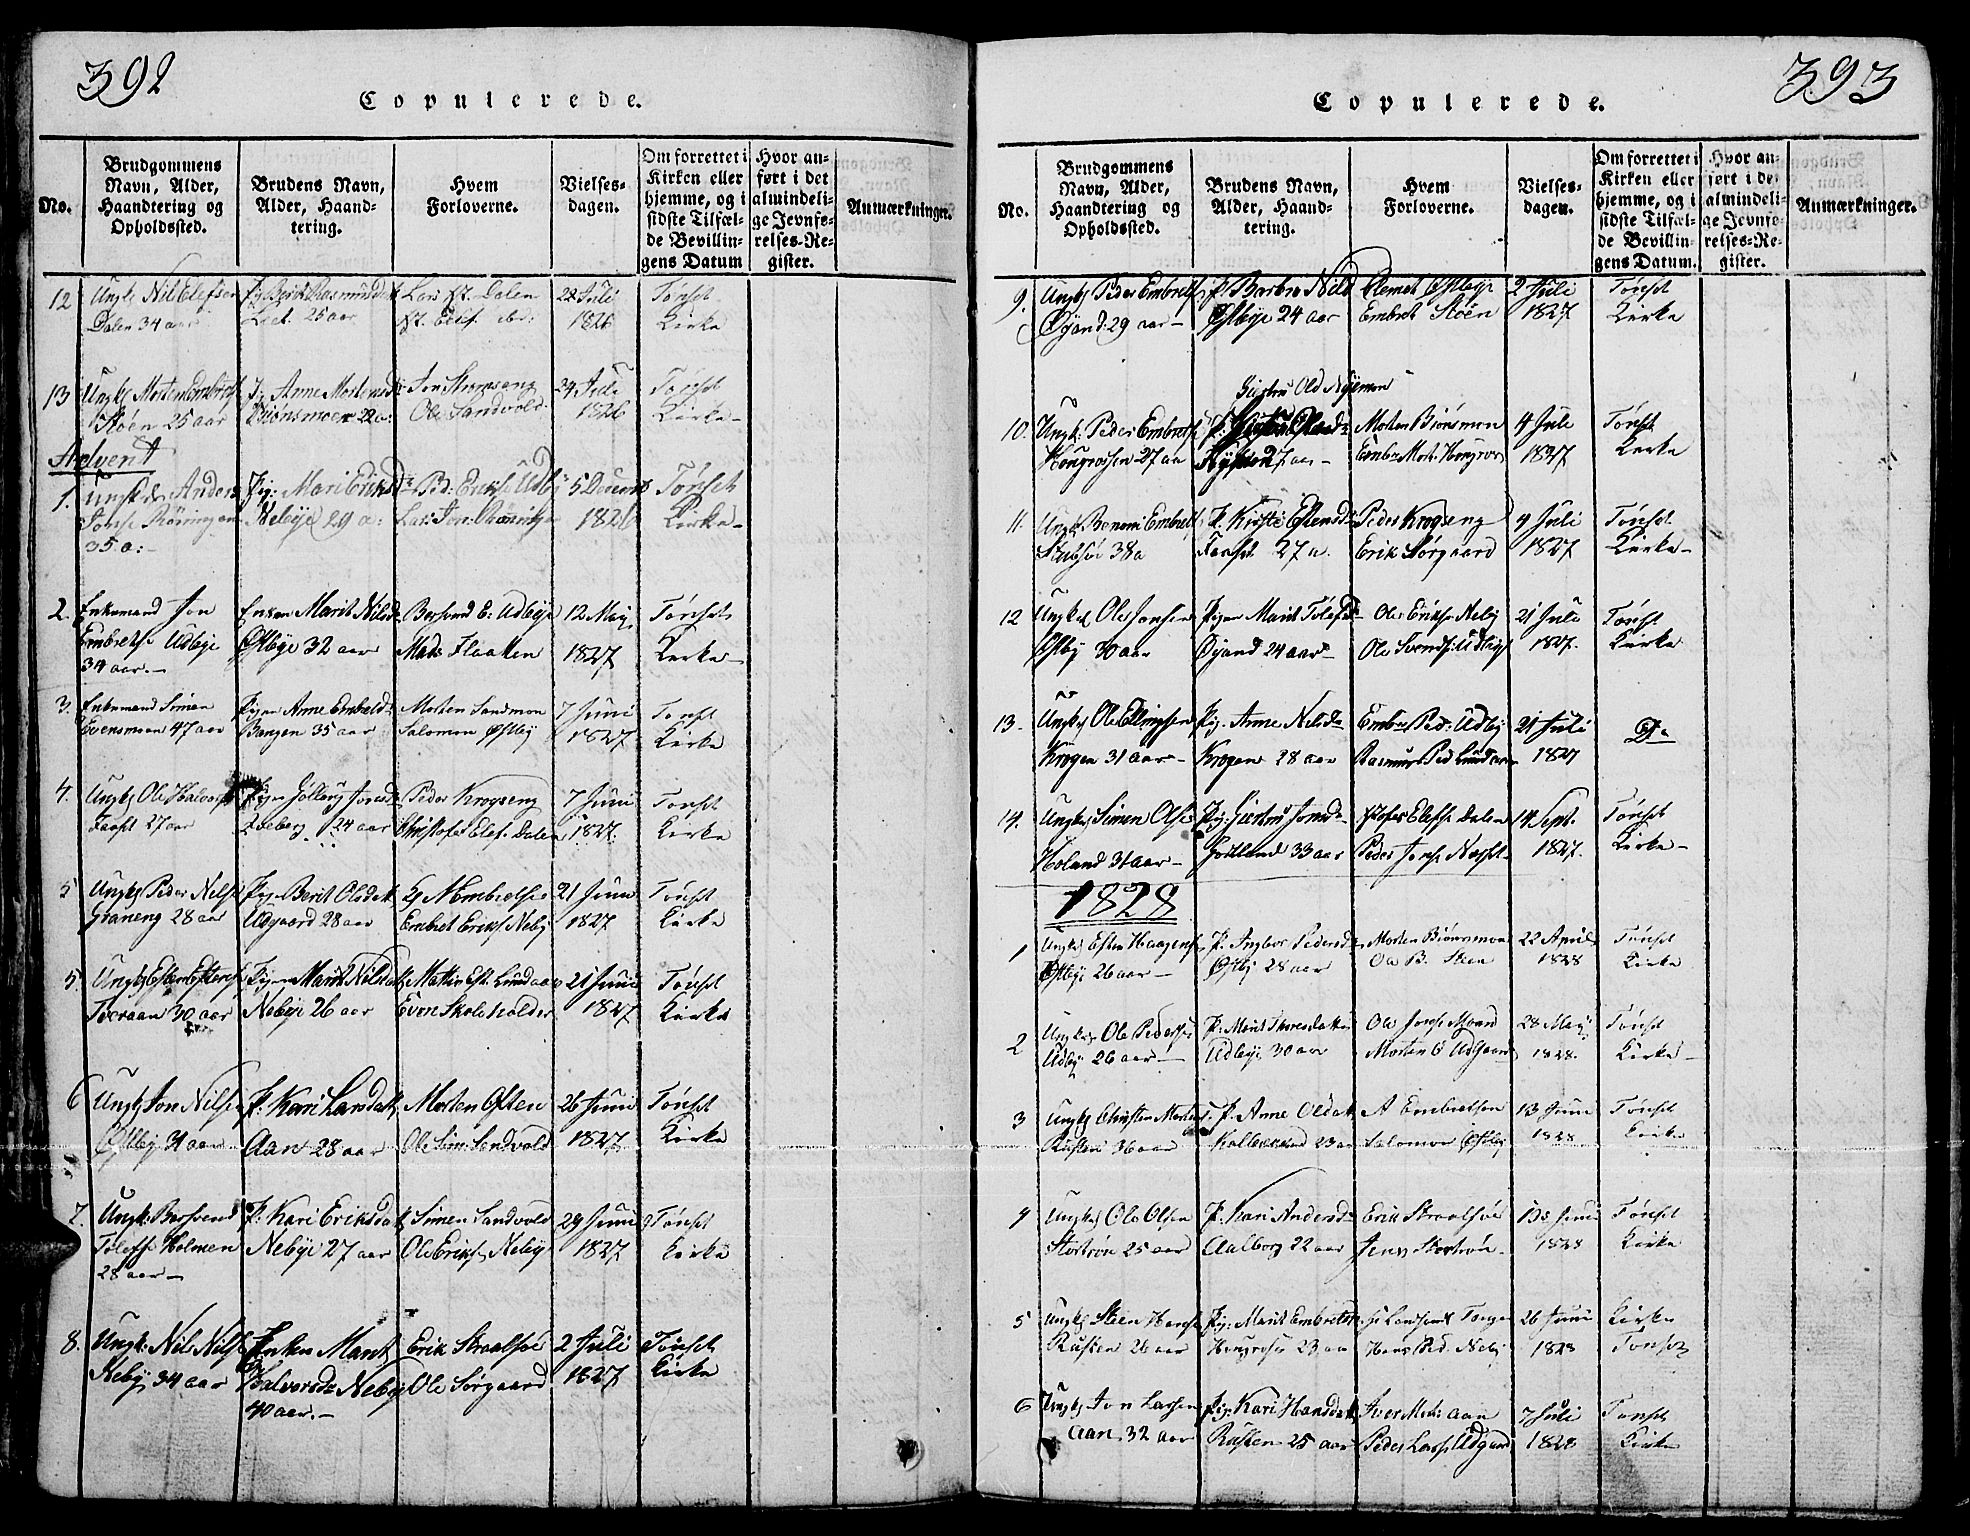 392
Copulerede.
No.
Brudgommens Navn, Alder, Haandtering og Opholdssted.
Brudens Navn, Alder, Haandtering.
Hvem Forloverne.
Vielsesdagen.
Om forrettet i Kirken eller hjemme, og i sidste Tilfælde Bevillingens Datum
Hvor anført i det almindelige Jevnførelses-Register.
Anmærkninger.
12 Ungk Nil Elefsen
Dalen 34 aar
Lars Dalen
22 Juli
1826
Tønset
Kirke
13 Ungk Morten Embretss
Støen 25 aar
P. Anne Mortensd
Biønsmoen 22 a:
Jon Strømseng
Ole Sandvold
24 Juli
1826
Tønset
Kirke
Advent
1. Ungk Anders
Jonss Røningen
35 a:
Pig: Mari Eriksd
Nebye 29 a:
Ped: Erikss Udby
Lars Jon: Røninge
5 December
1826
Tønset
Kirke
2. Enkemand Jon
Embretss Udbye
34 aar.
Enken Marit Nilsd
Østbye 32 aar
Bersvend E: Udbye
Mads Flaaten
12 May
1827
Tønset
Kirke
3. Enkemand Simen
Evensmoen 47 aar
Pigen Anne Embretsd
Bangen 35 aar
Morten Sandmon
Salomon Østby
7 Juni
1827
Tønset
Kirke
4. Ungk Ole Halvorss
Faaset 27 aar
24 aar
Peder Krogseng
Christofer Elef: Dalen
7 Juni
1827.
Tønset
Kirke
5 Ungk Peder Nilss
Graneng 28 aar
Pige Berit Olsdat
Udgaard 28 aar
Embret Erikss Neby
21 Juni
1827
Tønset
Kirke
5 Ungk Esten Estenss
Tveraaen 30 aar
Pigen Marit Nilsdat
Nebye 26 aar
Even Skoleholder
21 Juni
1827
Tønset
Kirke
6 Ungk Jon Nilsen
Østby 31 aar
P. Kari Larsdat
Aaen 28 aar
Morten Østen
Ole Sim: Sandvold
26 Juni
1827
Tønset
Kirke
7. Ungk: Bersvend
Tolefss Holmen
28 aar
P: Kari Eriksdat
Nebye 27 aar
Simen Sandvold
Ole Erikss Neby
29 Juni
1827
Tønset
Kirke
8. Ungk: Nils Nilss
Neby 34 aar
Enken Marit
Halvorsd Neby
40 aar.
Erik Straalsøe
Ole Sørgaard
2 Juli
1827
Tønset
Kirke
393
Copulerede.
No.
Brudgommens Navn, Alder, Haandtering og Opholdssted.
Brudens Navn, Alder, Haandtering.
Hvem Forloverne.
Vielsesdagen.
Om forrettet i Kirken eller hjemme, og i sidste Tilfælde Bevillingens Datum.
Hvor anført i det almindelige Jevnførelses-Register.
Anmærkninger.
9. Ungk Peder Embretss
Øyand: 29 aar
P. Barbro Nilsd
Østbye 24 aar
Clemet Østbye
Embret Støen
2 Juli
1827
Tønset
Kirke
10. Ungk: Peder Embretss
Hougrossen 27 aa
Giertru Olsd Nysmon
Morten Biønsmon
4 Juli
1827
Tønset
Kirke
11. Ungk Bonomi Embretss
Stubsøe 38 a
P. Kirsti Estensd
Faaset 27 a.
Peder Krogseng
Erik Sørgaard
9 Juli
1827
Tønset
Kirke
12 Ungk Ole Jonsen
Østby 30 aar
Pigen Marit Tolefsd
Øyand 24 aar
Ole Erikss Neby
Ole Svends: Udby
21 Juli
1827.
Tønset
Kirke
13. Ungk Ole Ellingsen
Krogen 31 aar
Pig. Anne Nilsd
Krogen 28 aar
Embr Ped: Udby
Rasmus Ped Lundaaen
21 Juli
1827
Do
14. Ungk Simen Olss
Holand 31 aar
Pig: Giertru Jonsd
33 aar
Elefss Dalen
Peder Jonss Næsset
14 Sept.
1827.
Tønset
Kirke
1828
1 Ungk Esten Haagenss
Østbye 26 aar
P. Ingbor Pedersd
Østby 28 aar
Morten Biønsmon
Ole B. Steen
22 April
1828
Tønset
Kirke
2 Ungk Ole Pederss
Udby 26 aar
P: Marit Thoresdatter
Udbye 30 aar
Ole Jonss Moand
Morten O Udgaard
28 May
1828.
Tønset
Kirke
3 Ungk Christen Mortens
Rusten 36 aar
P. Anne Olsdat
23 aar
A Embretsen
Salomon Østby
13 Juni
1828
Tønset
Kirke
4 Ungk Ole Olsen
Stortrøn 25 aar
P. Kari Andersd
Aalborg 22 aar
Erik Straalsøe
Jens Stortrøn
Juni
1828
Tønset
Kirke
5 Ungk Steen Hanss
Rusten 26 aar
Pig. Marit Embretsd
23 aar
Hans Ped. Neby
26 Juni
1828
Kirke
Tønset
6 Ungk Jon Larsen
Aan 32 aar
Pig. Kari Hansdat
Rusten 25 aar
Iver Mort: Aan
Peder Larss Udgard
7 Juli
1828
Tønset
Kirke